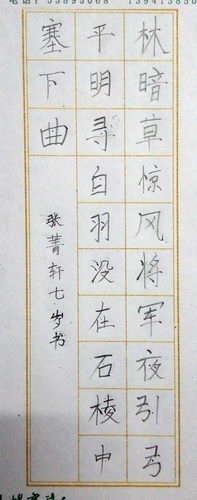 林暗草惊风将军夜引弓
平明寻白羽没在石棱中
塞下曲
张菁轩七岁书